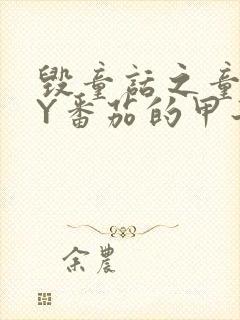 毁童话之童
Y番茄的甲
余农